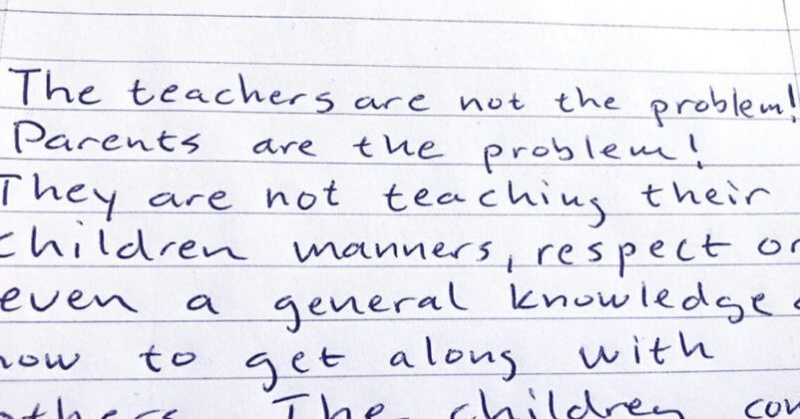 The teachers are not the problem!
Parents are the problem!
They are not teaching their
children manners, respect or
even a general knowledge
how to get along with
others. The children